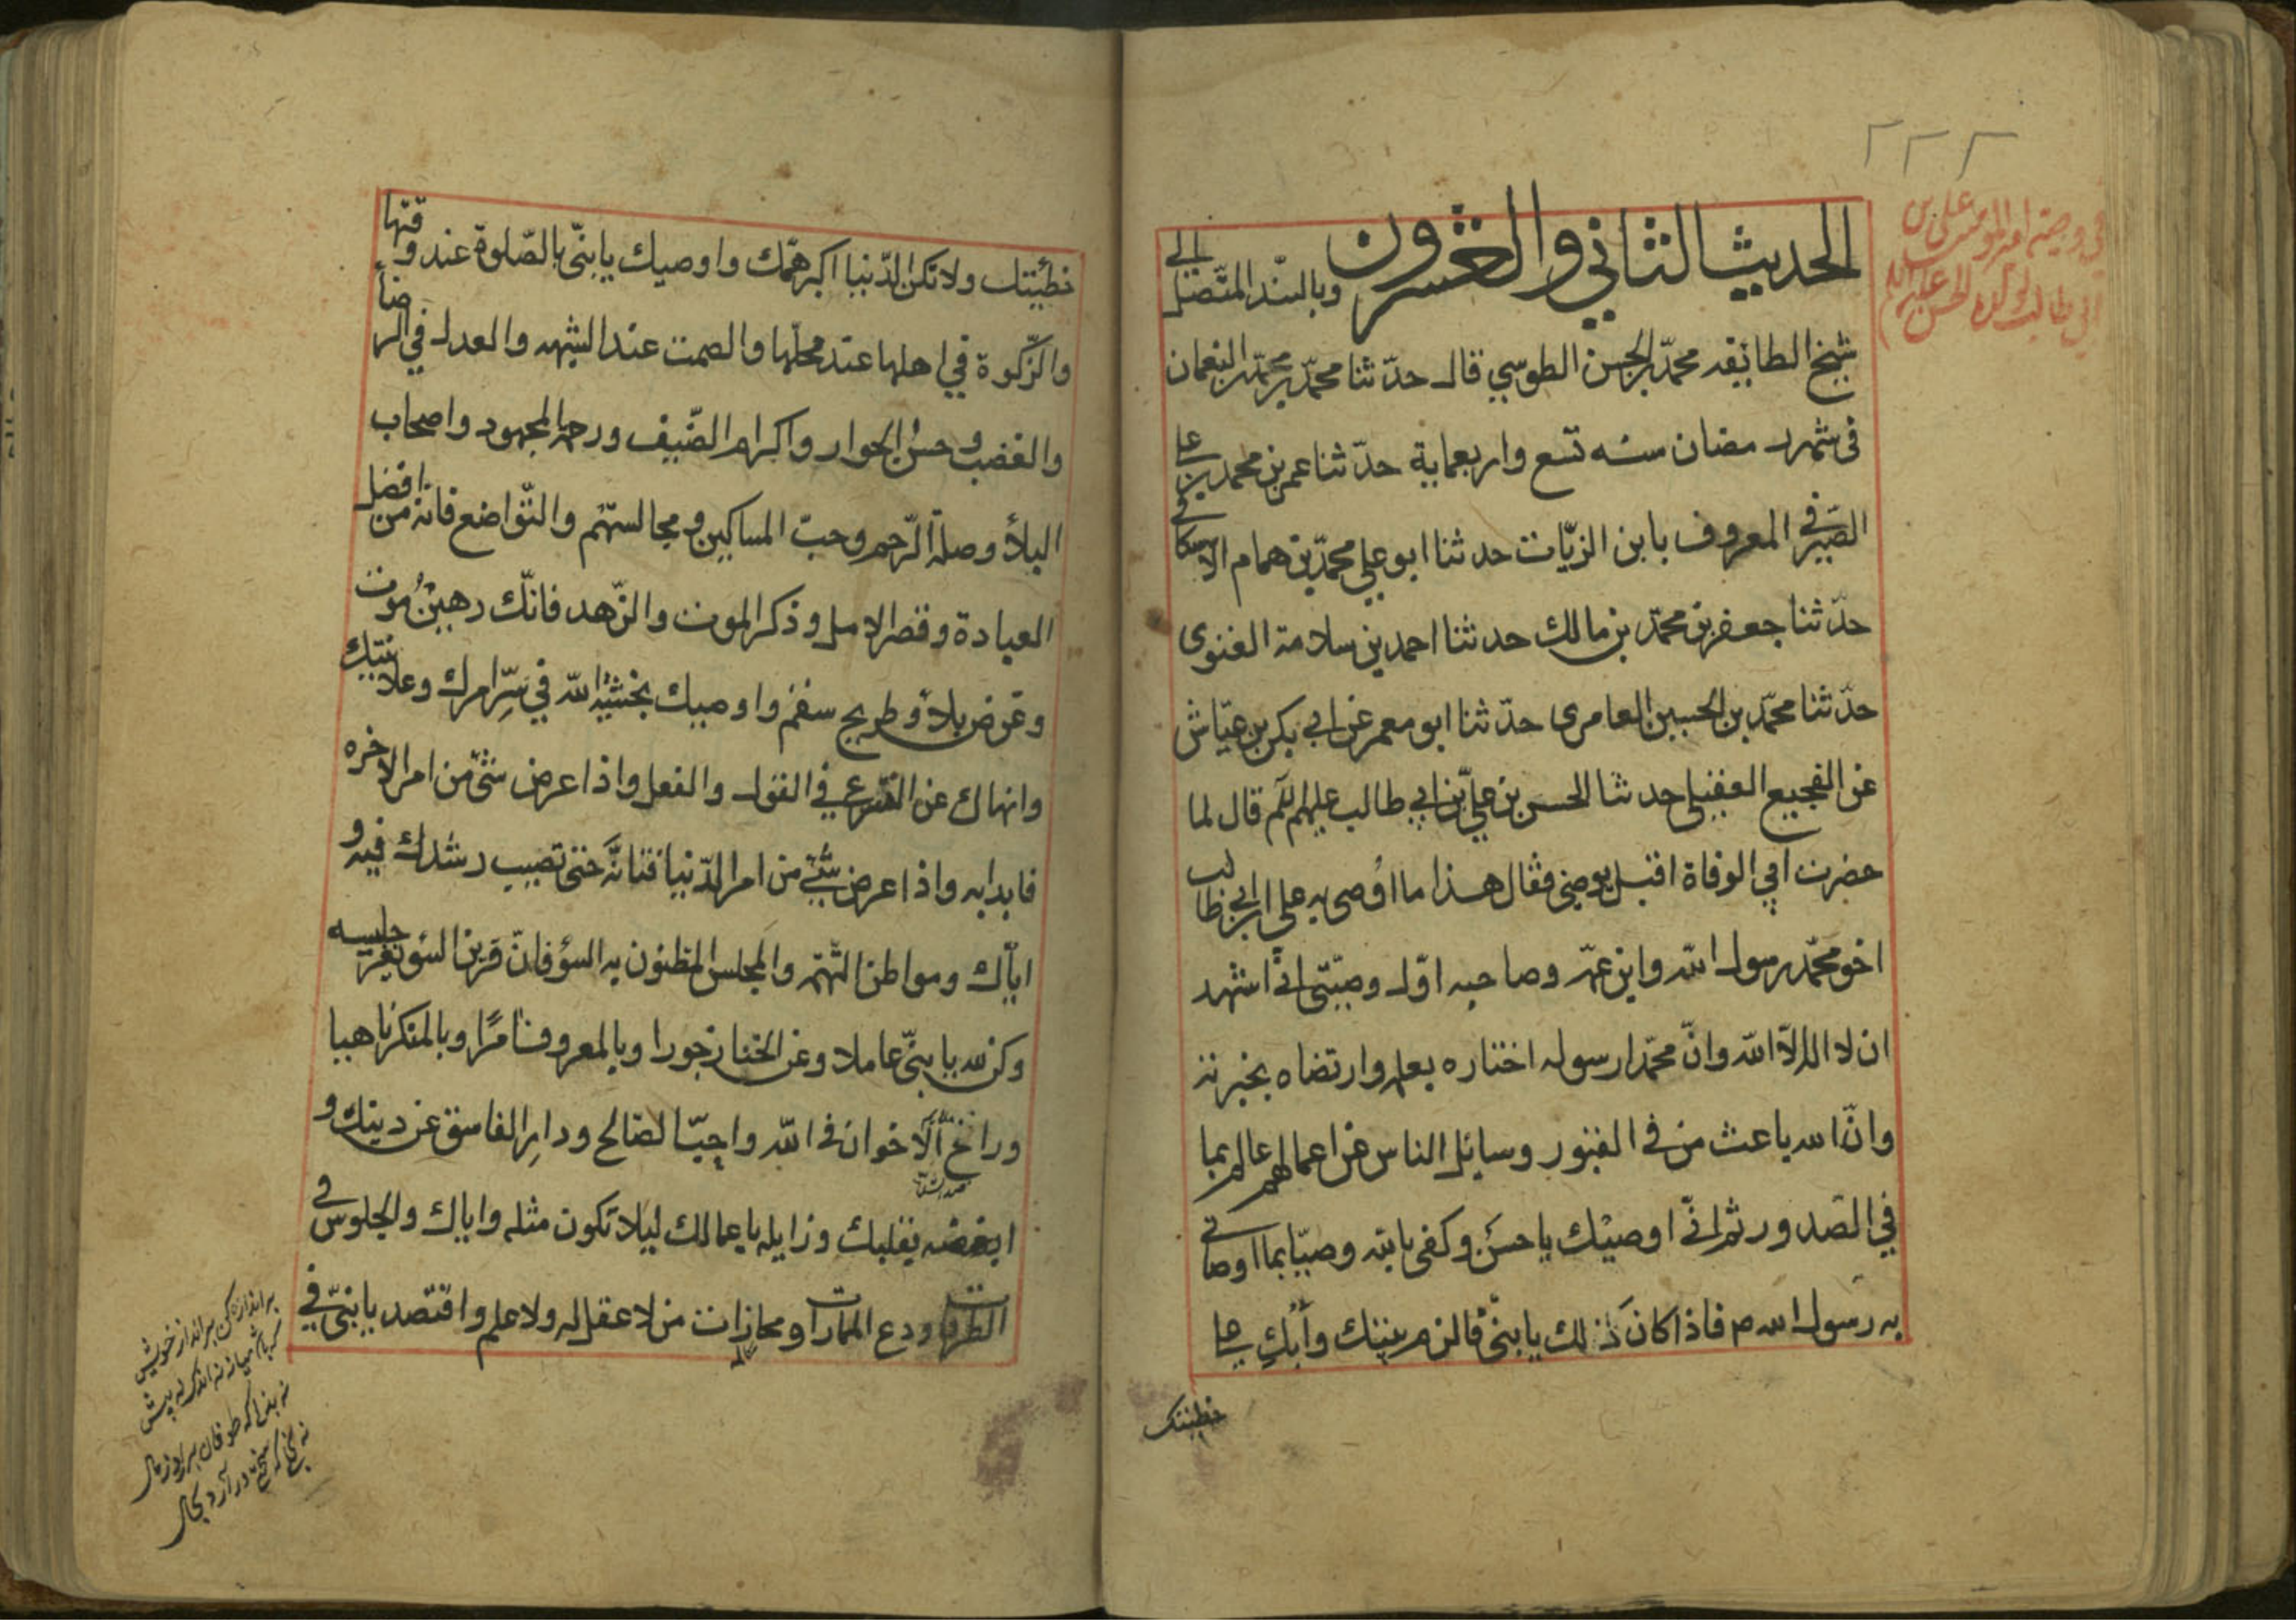 في وصية امير المومنين علي بن
ابي طالب لولده الحسن عليهما السلام
الحديث الثاني والعشرون وبالسند المتصل الي
شيخ الطائفه محمد بن الحسن الطوسي قال حدثنا محمد بن محمد بن النعمان
في شهر رمضان سنه تسع واربعماية حدثنا عمر بن محمد بن علي
الصيرفي المعروف بابن الزيات حدثنا ابو علي محمد بن همام الاسكافي
حدثنا جعفر بن محمد بن مالك حدثنا احمد بن سلامة الغنوى
حدثنا محمد بن الحسين العامرى حدثنا ابو معمر عن ابي بكر بن عياش
عن الفجيع العقيلي حدثنا الحسن بن علي بن ابي طالب عليهم السلم قال لما
حضرت ابي الوفاة اقبل يوصي فقال هذا ما اوصى به علي ابن ابي طالب
اخو محمد رسول الله وابن عمه وصاحبه اول وصيتي اني اشهد
ان لا اله الا الله وان محمدا رسوله اختاره بعلمه وارتضاه بخيرته
وان الله باعث من في القبور وسايل الناس عن اعمالهم عالم بما
في الصدور ثم اني اوصيك يا حسن وكفى بك وصيا بما اوصاني
به رسول الله ص فاذا كان ذلك يا بني فالزم بيتك وابك على
خطيئتك
خطيئتك ولا تكن الدنيا اكبر همك واوصيك يا بني بالصلوة عند وقتها
والزكوة في اهلها عند محلها والصمت عند الشبهه والعدل في الرضا
والغضب وحسن الجوار واكرام الضيف ورحمة المجهود واصحاب
البلأ وصلة الرحم وحب المساكين ومجالستهم والتواضع فانه من افضل
العبادة وقصر الامل وذكر الموت والزهد فانك رهين موت
وعرض بلأ وطريح سقم واوصيك بخشية الله في سر امرك وعلانيتك
وانهاك عن التسرع في القول والفعل واذا عرض شئ من امر الاخره
فابدا به واذا عرض شئ من امر الدنيا فتانه حتى تصيب رشدك فيه و
اياك ومواطن التهمة والمجلس المظنون به السؤ فان قرين السو يغر جليسه
وكن لله يا بني عاملا وعن الخنا زجورا وبالمعروف امرا وبالمنكر ناهيا
وراخ الاخوان في الله واحب الصالح ودار الفاسق عن دينك و
ابغضه بقلبك وزايله باعمالك ليلا تكون مثله واياك والجلوس في
الطرقات ودع الممارات ومجازات من لا عقل له ولا علم واقتصد يا بني في